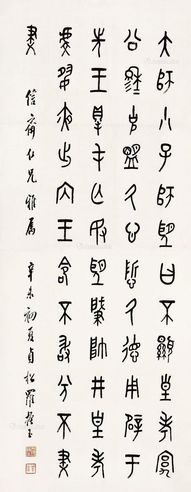 大師小子師朢曰不顯皇考宄
公穆克盟厥心悊厥德用辟于
先王得屯亡敃朢肇帥井皇考
虔夙夜出內王命不敢分不
信齋仁兄雅屬 辛未初夏貞松羅振玉